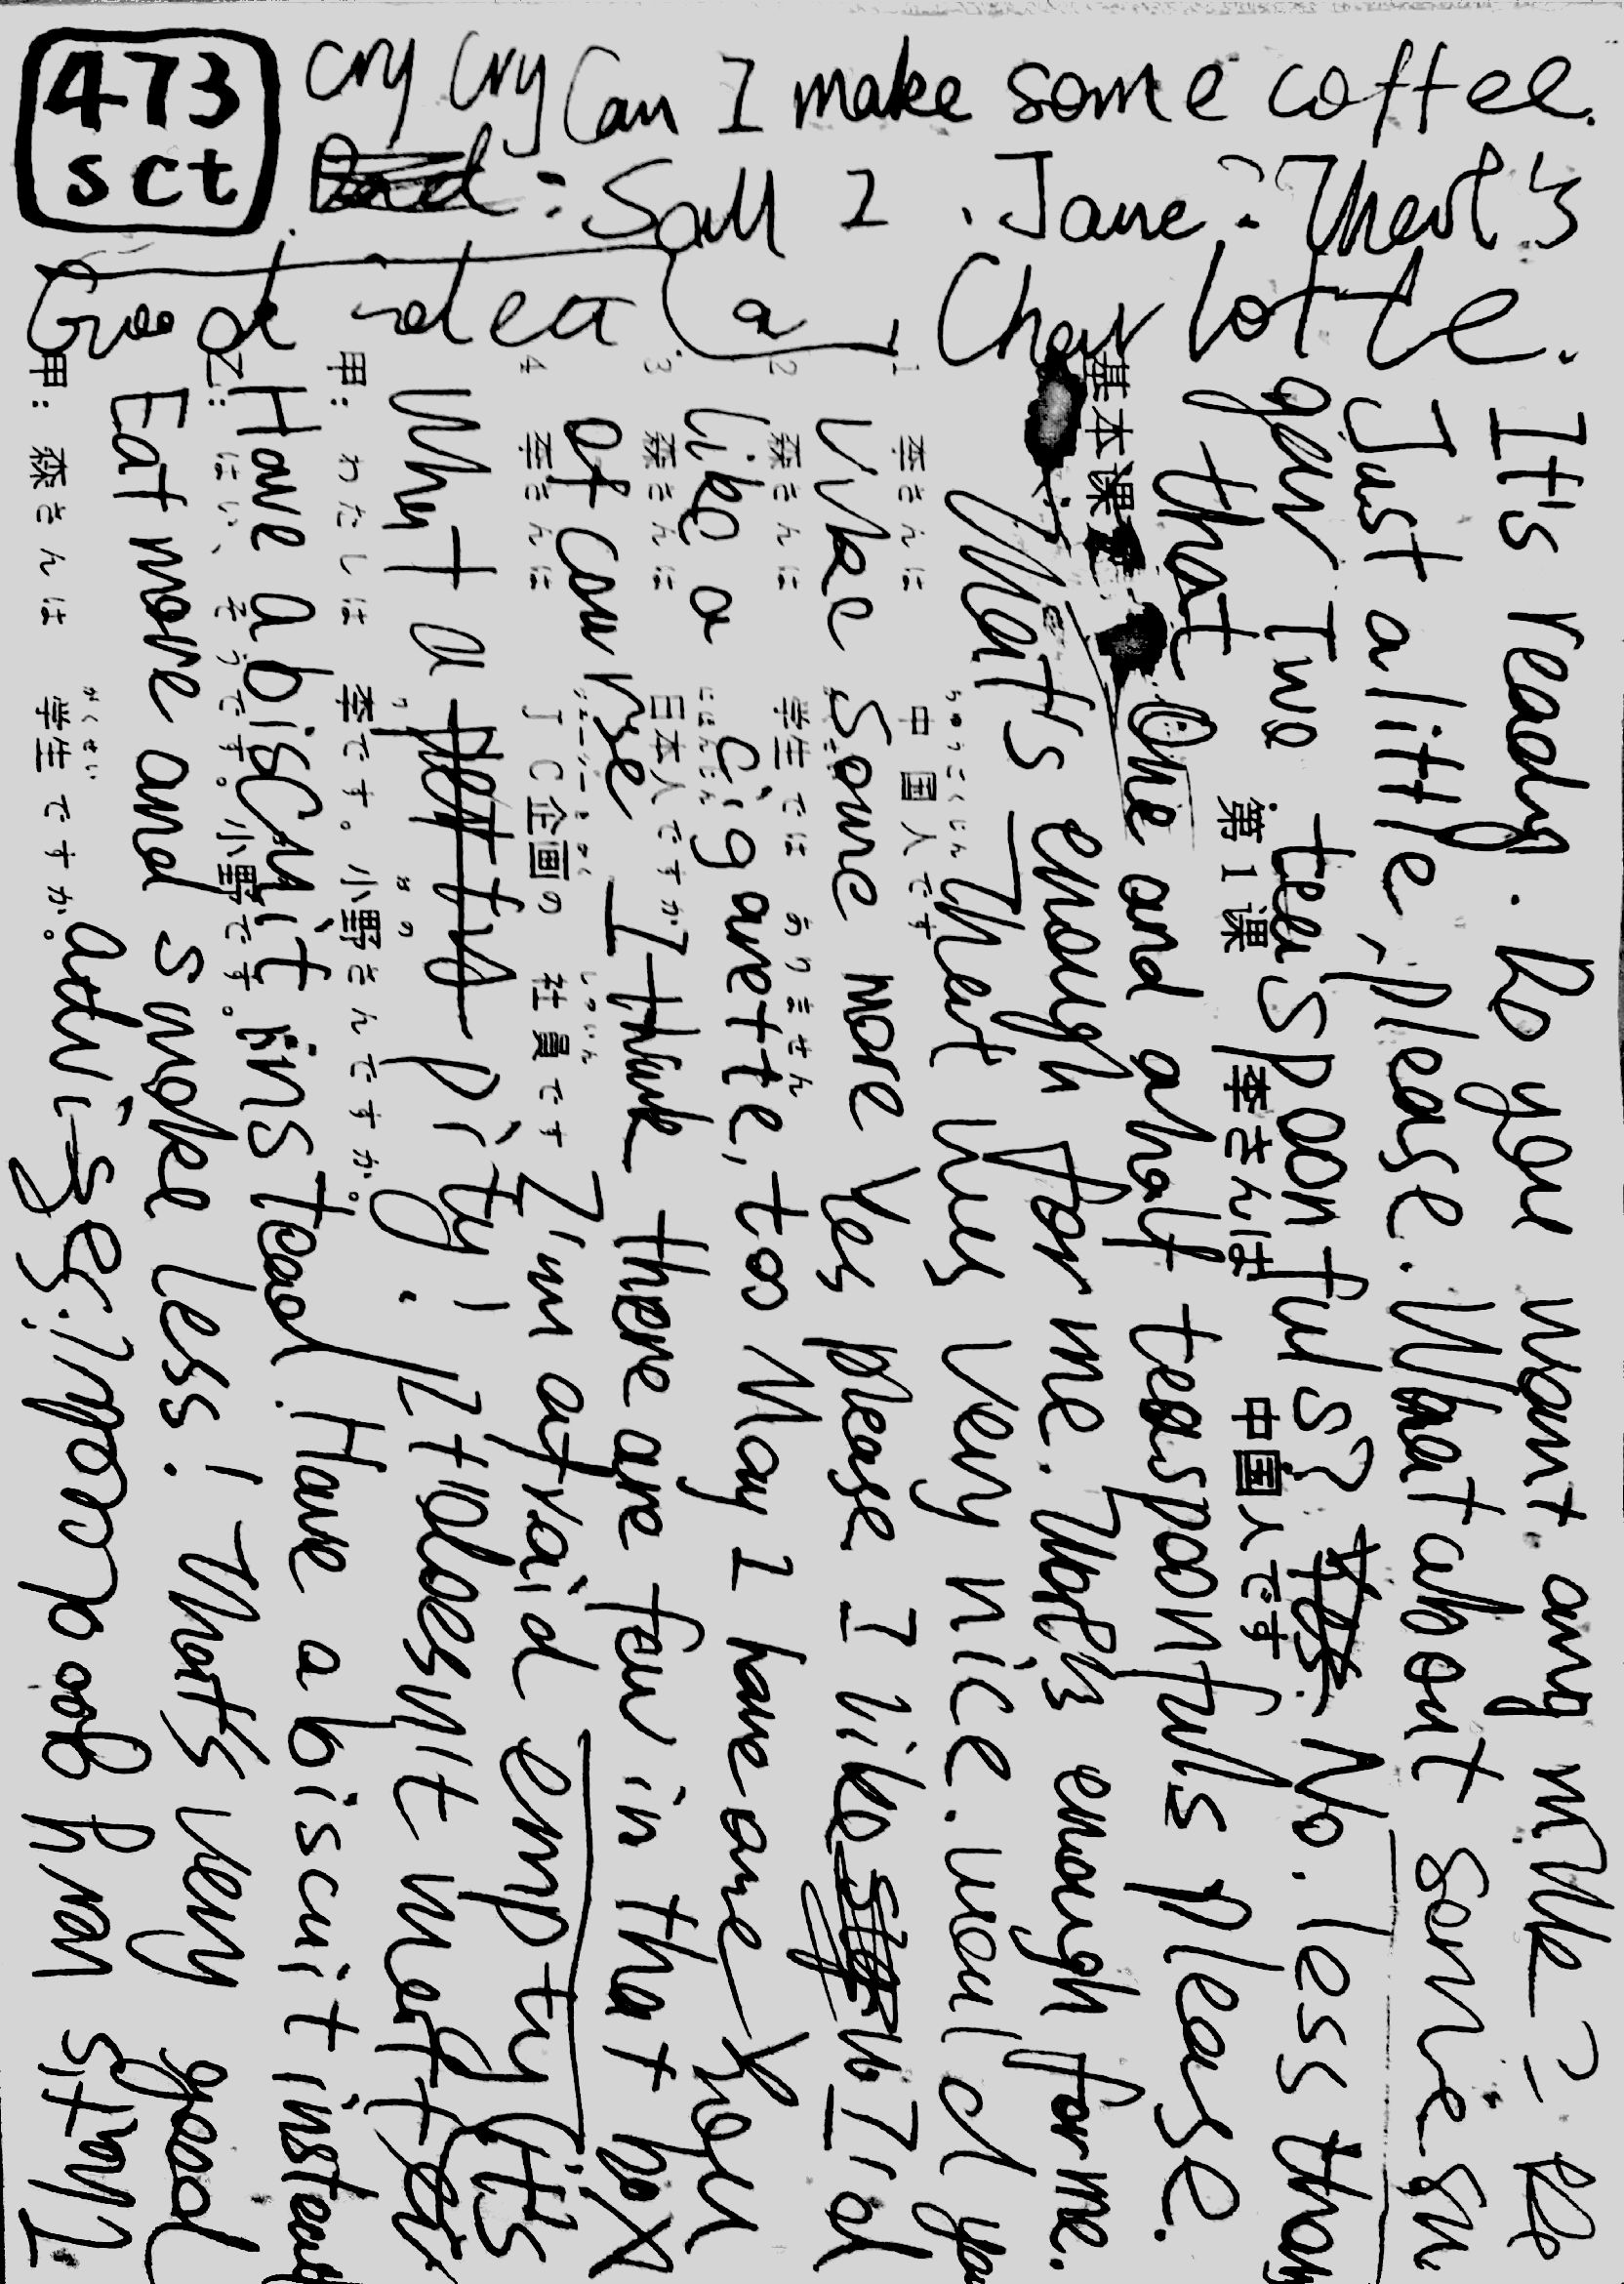 473
sct
cry cry Can I make some coffee.
: Sall I . Jane: That's
Good idea (a), Charlotte:
It's ready. Do you want any milk =
Just a little, please. What about some su
gar Two teaspoonfuls? No. less than
that One and a half teaspoonfuls please.
That's enough for me. That's enough for me.
That was very nice. Would you
like some more Yes please I like I'd
like a cigarette, too May I have one You
of course I think there are few in that box
I'm afraid empty (it's
Wht a pity! It doesn't matter
Have a biscuit instead! Have a biscuit instead
Eat more and smoke less! That's very good
第1课 李さんは 中国人です
基本课
1 李さんは 中国人です
2 森さんは 学生では ありません
3 森さんは 日本人ですか
4 李さんは JC企画の 社員です
甲: わたしは 李です。小野さんですか。
乙: はい、そうです。小野です。
甲: 森さんは 学生ですか。